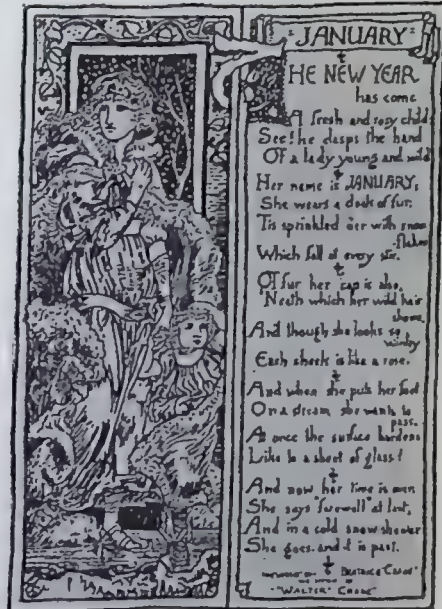 JANUARY
THE NEW YEAR
has come
A fresh and rosy child
See! he clasps the hand
Of a lady young and wild
Her name is JANUARY,
She wears a cloak of fur.
Tis sprinkled o'er with snow
-flakes
Which fall at every stir.
Of fur her cap is also,
'Neath which her wild hair
shows,
And though she looks so
wintry
Each cheek is like a rose.
And when she puts her foot
On a stream she wants to
pass,
At once the surface hardens
Like to a sheet of glass!
And now her time is over
She says "farewell" at last,
And in a cold snow shower
She goes and is past.
BEATRICE CRANE
"WALTER CRANE"